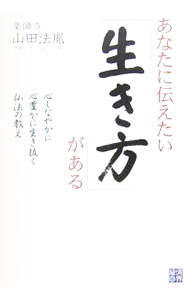 あなたに伝えたい
生き方
がある
薬師寺
山田法胤
心しなやかに
心豊かに生き抜く
仏法の教え